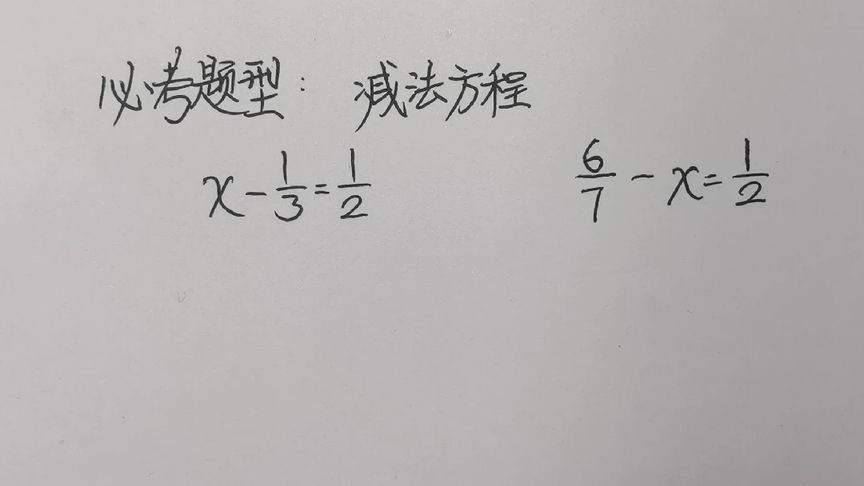 必考题型: 减法方程
x - 1/3 = 1/2
6/7 - x = 1/2